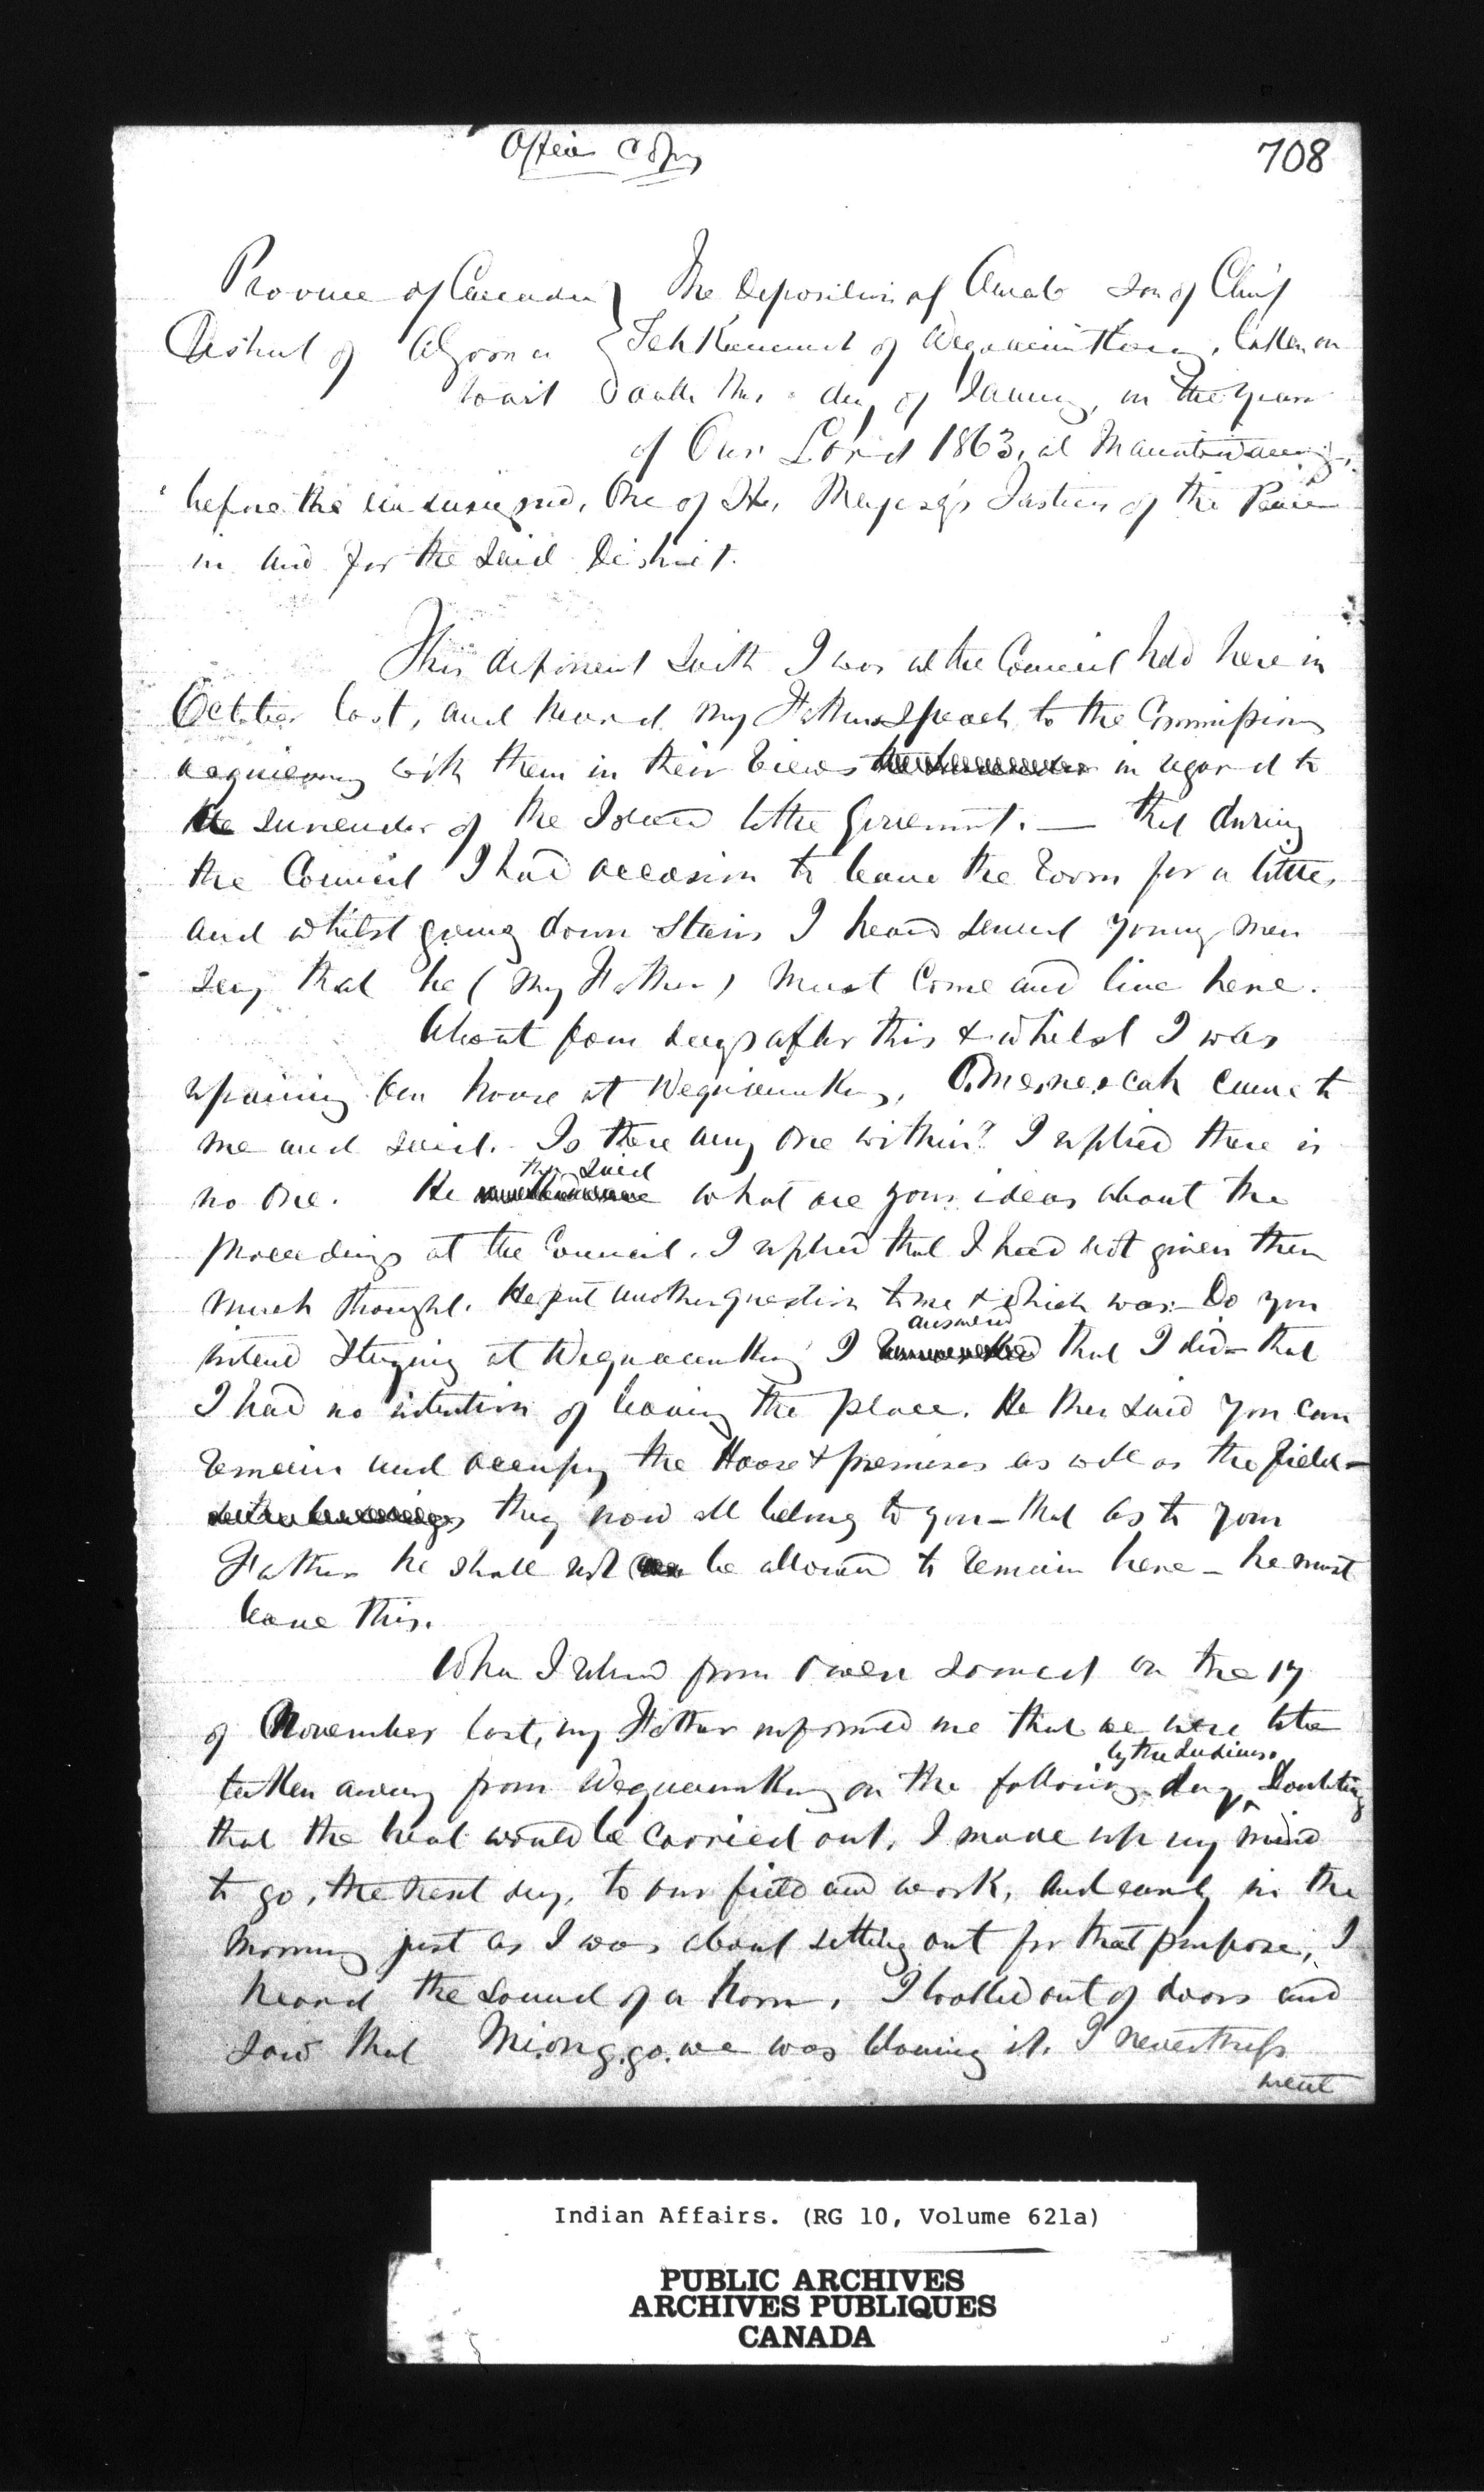 Office Copy
708
Province of Canada } The Deposition of Amab Son of Chief
District of Algoma { Tehkummeh of Wequaimikong, taken on
to wit oath this day of January, in the year
of Our Lord 1863, at Manitowaning,
before the undersigned, One of Her Majesty's Justices of the Peace
in and for the Said District.
This deponent Saith I was at the Council held here in
October last, and heard my Father Speach to the Commissioners
acquiescing with them in their views in regard to
the Surrender of the Island to the Government. — that during
the Council I had occasion to leave the room for a little,
and whilst going down Stairs I heard several young men
say that he (my Father) must Come and live here.
About four days after this & whilst I was
repairing our house at Wequiemikong, O.me.ne.s cah came to
me and said. Is there any one within? I replied there is
no one. He then said what are your ideas about the
proceedings at the Council. I replied that I had not given them
much thought. He put another question to me & which was — Do you
intend Staying at Wequaemikong I answered that I did — that
I had no intention of leaving the place. He then said you can
remain and occupy the House & premises as well as the field —
they now all belong to you — that as to your
Father he shall not be allowed to remain here — he must
leave this.
When I returned from Owen Sound on the 17
of November last, my Father informed me that we were to be
taken away from Wequaemikong on the following day by the Indians. Doubting
that the threat would be carried out, I made up my mind
to go, the next day, to our field and work, and early in the
morning just as I was about setting out for that purpose, I
heard the sound of a horn, I looked out of doors and
saw that Mi.ong.go.we was blowing it. I nevertheless
went
Indian Affairs. (RG 10, Volume 621a)
PUBLIC ARCHIVES
ARCHIVES PUBLIQUES
CANADA